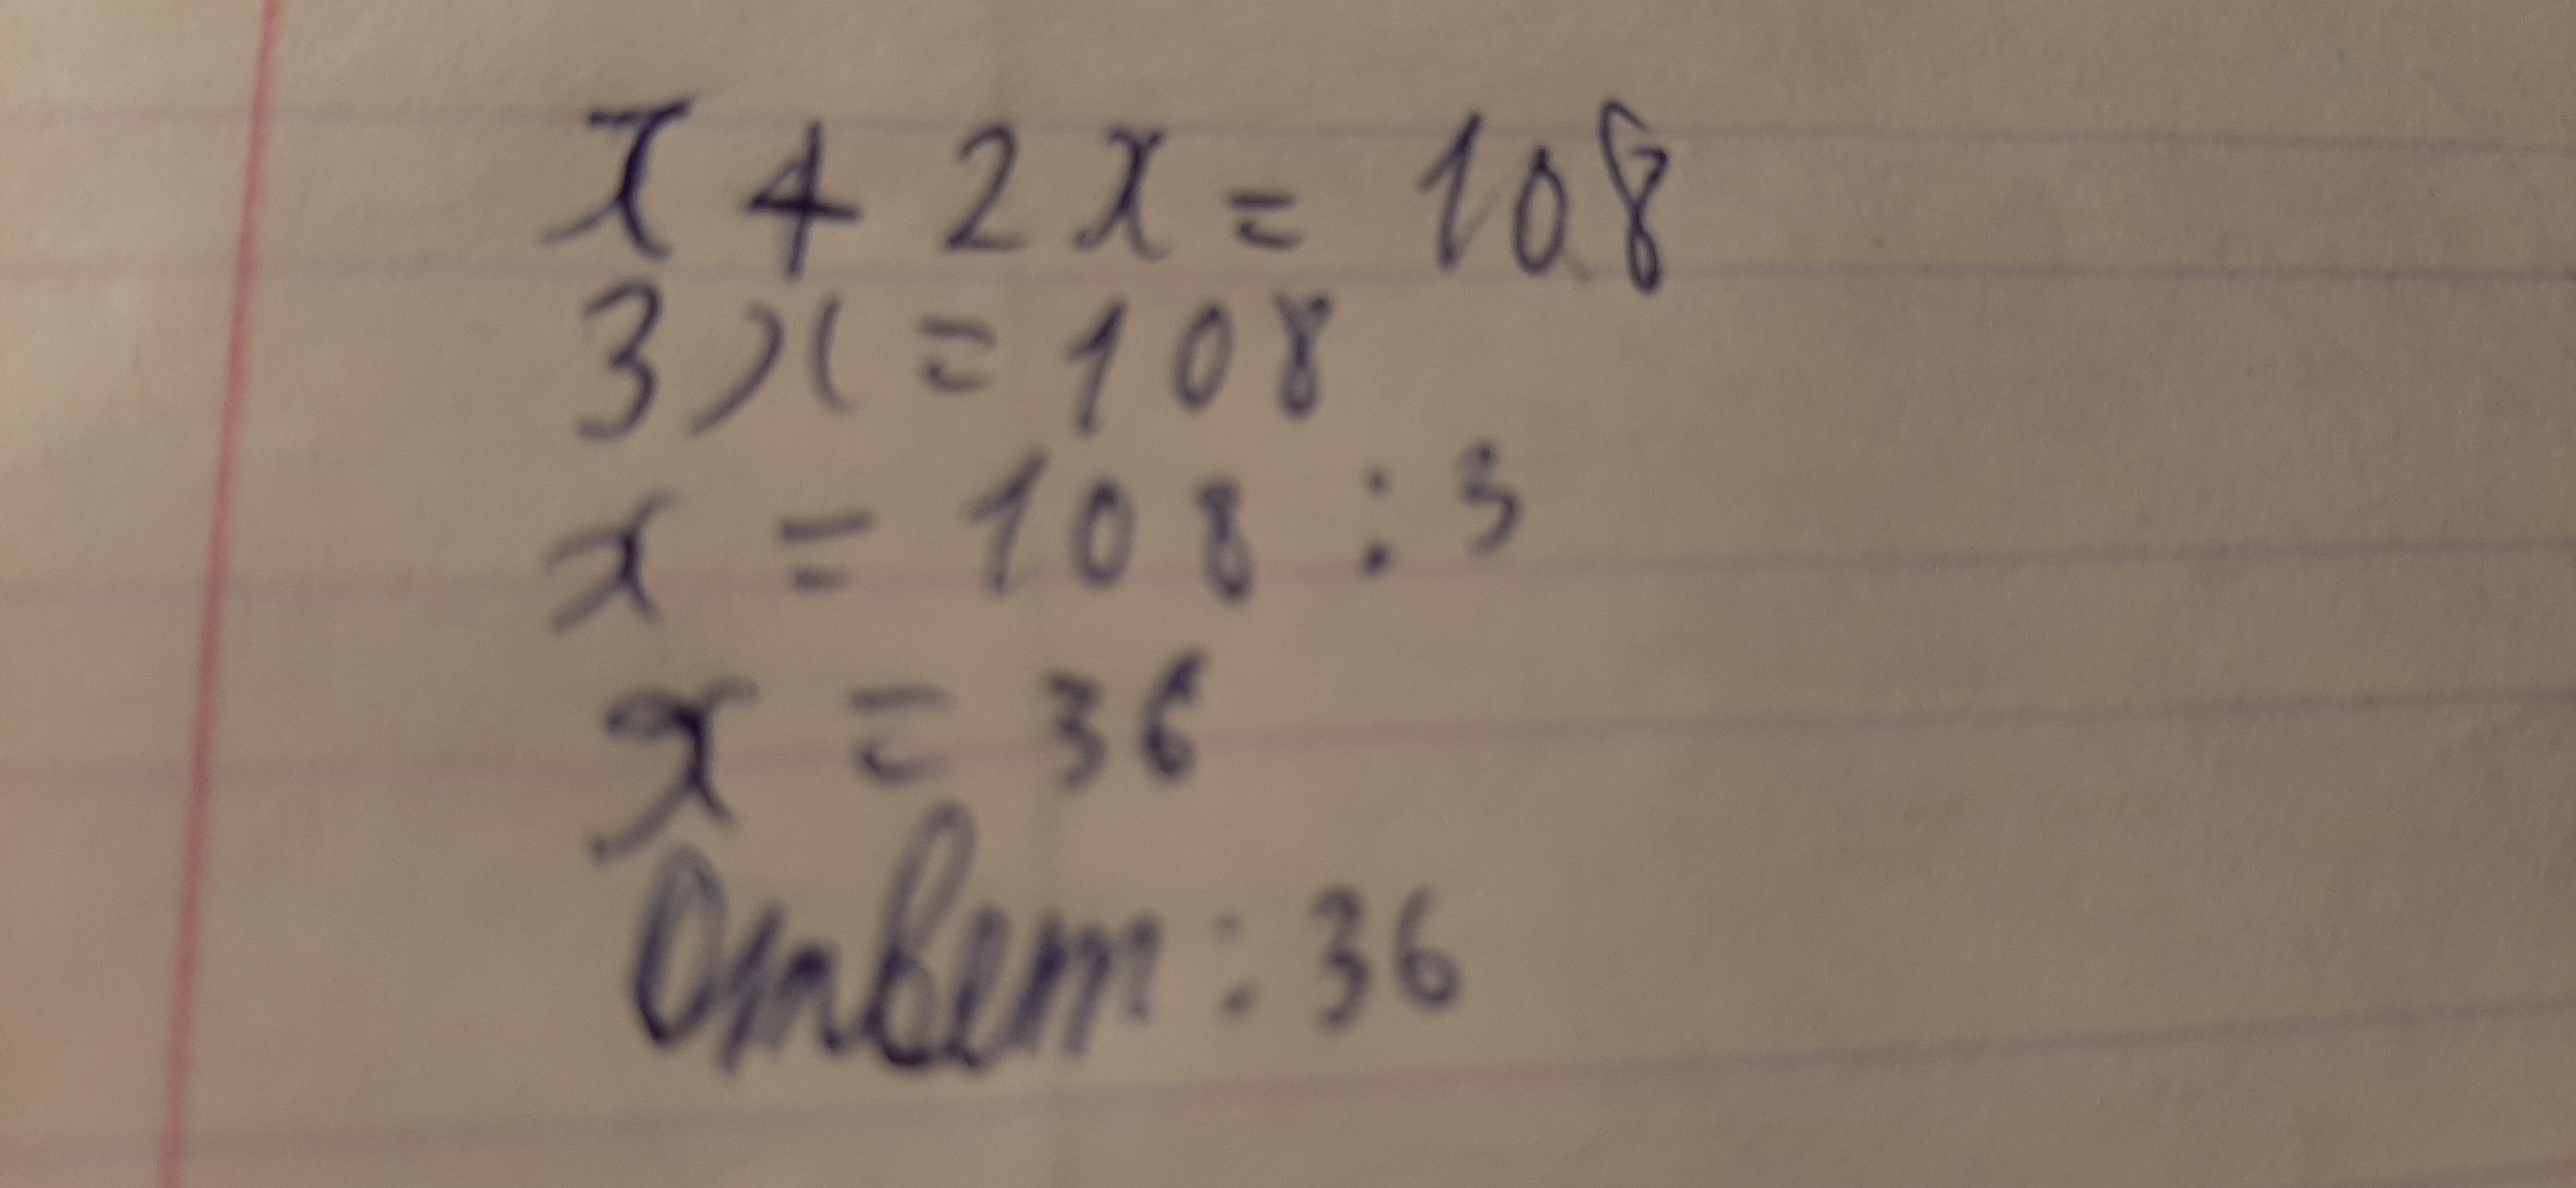 x + 2x = 108
3x = 108
x = 108 : 3
x = 36
Ответ: 36